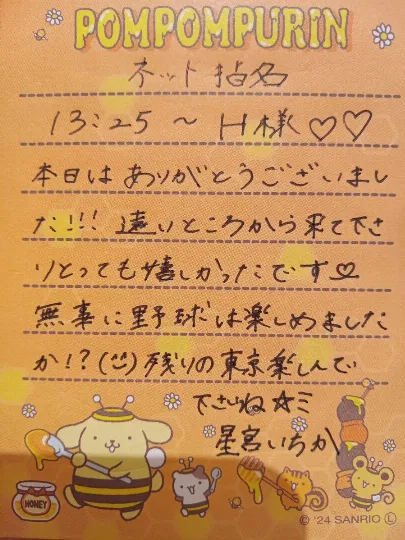 POMPOMPURIN
ネット指名
13:25 〜 H様♡♡
本日はありがとうございまし
た!!! 遠いところから来て下さ
りとっても嬉しかったです♡
無事に野球は楽しめました
か!?(¨)残りの東京楽しんで
下さいね☆ミ
星宮いちか
HONEY
© '24 SANRIO Ⓛ